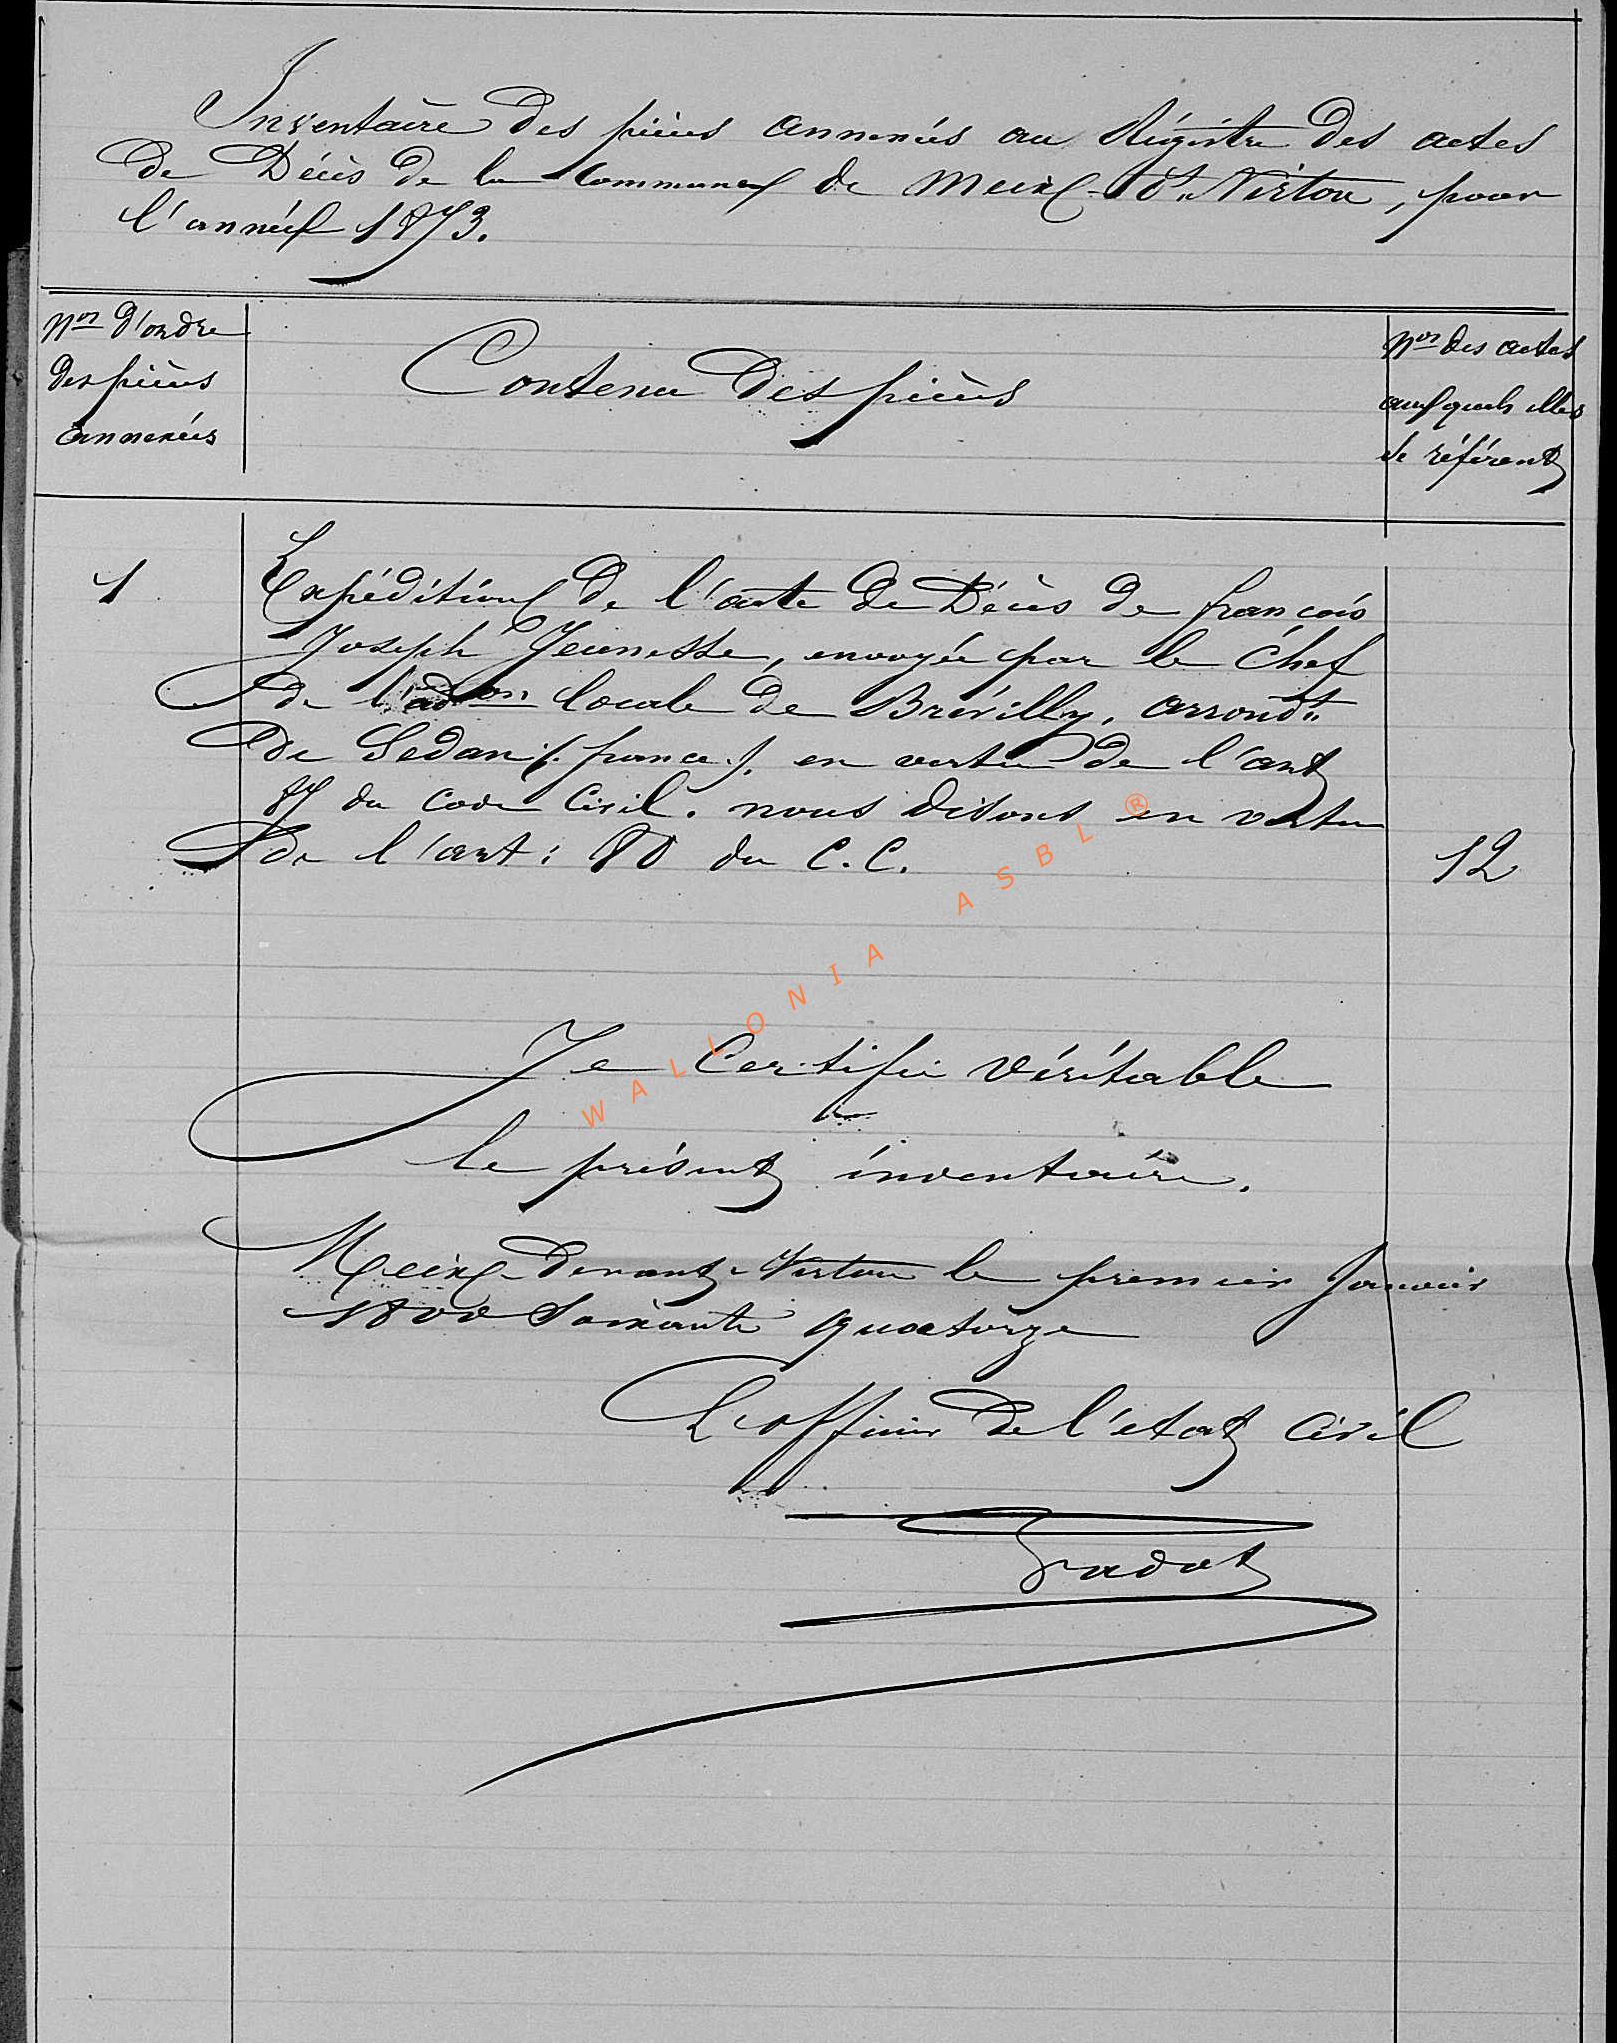 Inventaire des pièces annexées au Régistre des actes
de Décès de la Commune de Meix-dt-Virton, pour
l'année 1873.
Nos d'ordre
des pièces
annexées
Contenu des pièces
Nos des actes
auxquels elles
se réfèrent
1
Expédition de l'acte de Décès de françois
Joseph Jeunesse, envoyée par le Chef
de l'adon locale de Brévilly, arrondt
de Sedan (france). en vertu de l'art
87 du code Civil. nous disons en vertu
de l'art: 80 du C.C.
12
WALLONIA ASBL ®
Je Certifie véritable
le présent inventaire.
Meix-devant-Virton le premier Janvier
1800 Soixante quatorze
L'officier de l'état Civil